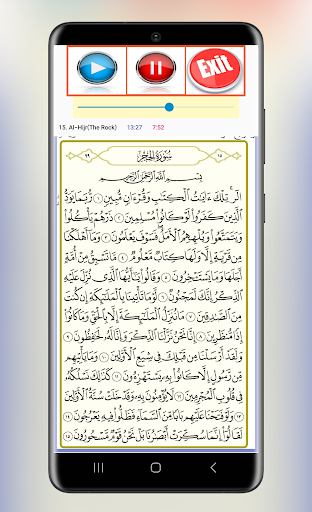 Exit
15. Al-Hijr(The Rock) 13:27 7:52
٩٩ سُورَةُ الحِجْرِ ١٥
بِسْمِ اللَّهِ الرَّحْمَٰنِ الرَّحِيمِ
الٓرۚ تِلْكَ ءَايَٰتُ ٱلْكِتَٰبِ وَقُرْءَانٍ مُّبِينٍ ١ رُّبَمَا يَوَدُّ
ٱلَّذِينَ كَفَرُوا۟ لَوْ كَانُوا۟ مُسْلِمِينَ ٢ ذَرْهُمْ يَأْكُلُوا۟
وَيَتَمَتَّعُوا۟ وَيُلْهِهِمُ ٱلْأَمَلُ فَسَوْفَ يَعْلَمُونَ ٣ وَمَآ أَهْلَكْنَا
مِن قَرْيَةٍ إِلَّا وَلَهَا كِتَابٌ مَّعْلُومٌ ٤ مَّا تَسْبِقُ مِنْ أُمَّةٍ
أَجَلَهَا وَمَا يَسْتَـْٔخِرُونَ ٥ وَقَالُوا۟ يَٰٓأَيُّهَا ٱلَّذِى نُزِّلَ عَلَيْهِ
ٱلذِّكْرُ إِنَّكَ لَمَجْنُونٌ ٦ لَّوْ مَا تَأْتِينَا بِٱلْمَلَٰٓئِكَةِ إِن كُنتَ
مِنَ ٱلصَّٰدِقِينَ ٧ مَا نُنَزِّلُ ٱلْمَلَٰٓئِكَةَ إِلَّا بِٱلْحَقِّ وَمَا كَانُوٓا۟
إِذًا مُّنظَرِينَ ٨ إِنَّا نَحْنُ نَزَّلْنَا ٱلذِّكْرَ وَإِنَّا لَهُۥ لَحَٰفِظُونَ ٩
وَلَقَدْ أَرْسَلْنَا مِن قَبْلِكَ فِى شِيَعِ ٱلْأَوَّلِينَ ١٠ وَمَا يَأْتِيهِم
مِّن رَّسُولٍ إِلَّا كَانُوا۟ بِهِۦ يَسْتَهْزِءُونَ ١١ كَذَٰلِكَ نَسْلُكُهُۥ
فِى قُلُوبِ ٱلْمُجْرِمِينَ ١٢ لَا يُؤْمِنُونَ بِهِۦ وَقَدْ خَلَتْ سُنَّةُ ٱلْأَوَّلِينَ
١٣ وَلَوْ فَتَحْنَا عَلَيْهِم بَابًا مِّنَ ٱلسَّمَآءِ فَظَلُّوا۟ فِيهِ يَعْرُجُونَ ١٤
لَقَالُوٓا۟ إِنَّمَا سُكِّرَتْ أَبْصَٰرُنَا بَلْ نَحْنُ قَوْمٌ مَّسْحُورُونَ ١٥